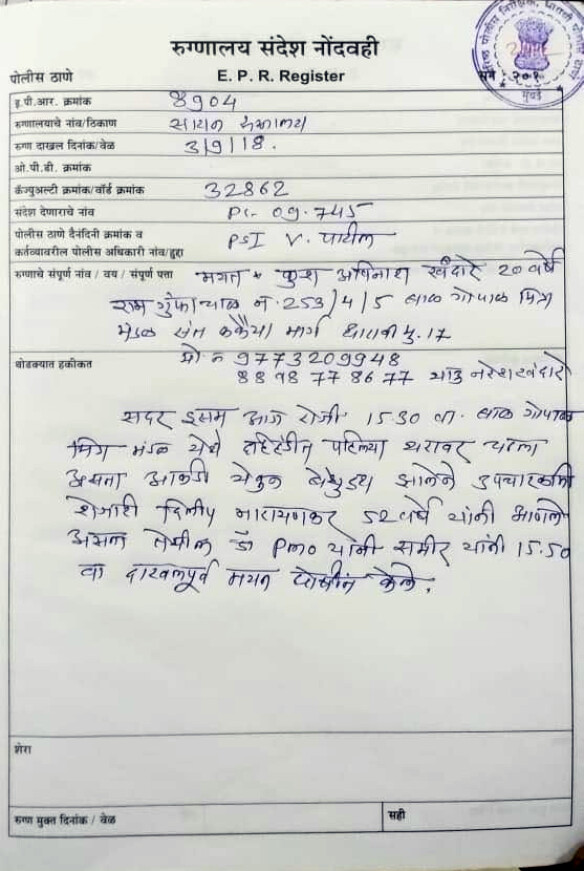 रुग्णालय संदेश नोंदवही
पोलीस ठाणे
E. P. R. Register
सन २०१
मुंबई
इ.पी.आर. क्रमांक 8904
रुग्णालयाचे नांव/ठिकाण सायन रुग्णालय
रुग्ण दाखल दिनांक/वेळ 3/9/18.
ओ.पी.डी. क्रमांक
कॅज्युअल्टी क्रमांक/वॉर्ड क्रमांक 32862
संदेश देणाराचे नांव Pc- 09.745
पोलीस ठाणे दैनंदिनी क्रमांक व
कर्तव्यावरील पोलीस अधिकारी नांव/हुद्दा PSI V. पाटील
रुग्णाचे संपूर्ण नांव / वय / संपूर्ण पत्ता मयत कुश अविनाश खंदारे 20 वर्षे
राम गुंफा चाळ नं. 253/4/5 बाळ गोपाळ मित्र
मंडळ संत ककैया मार्ग धारावी मु. 17
मो. नं 9773209948
थोडक्यात हकीकत 8898778677 भाऊ नरेश खंदारे
सदर इसम आज रोजी 1530 वा. बाळ गोपाळ
मित्र मंडळ येथे दहिहंडीत पहिल्या थरावर चढला
असता आकडी येवुन बेशुद्ध झालेने उपचारकामी
शेजारी दिलीप नारायणकर 52 वर्षे यांनी आणले
असता तेथील डॉ Pmo यांनी समीर यांनी 15.50
वा दाखलपुर्व मयत घोषीत केले.
शेरा
रुग्ण मुक्त दिनांक / वेळ
सही